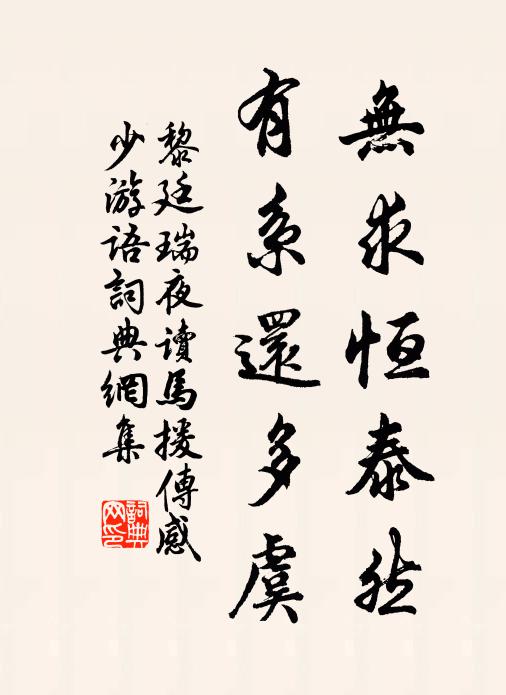 無求恒泰然
有系還多虞
黎廷瑞夜讀馬援傳感
少游語詞典網集
詞典网印